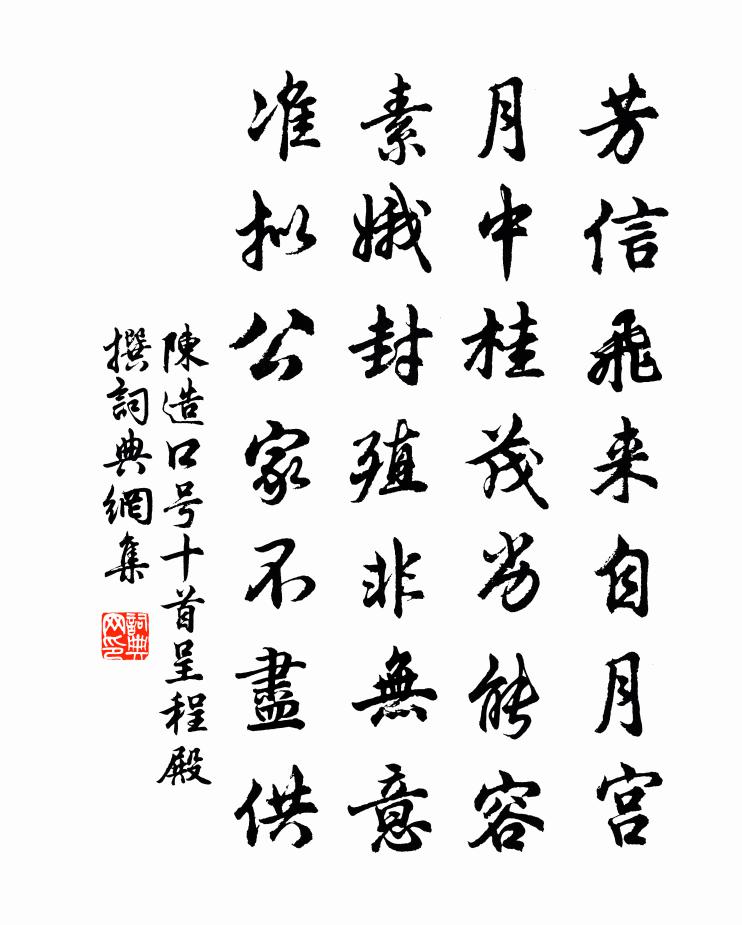 芳信飛来自月宮
月中桂茂劣能容
素娥封殖非無意
准拟公家不盡供
陳造口号十首呈程殿
撰詞典網集
詞典网印